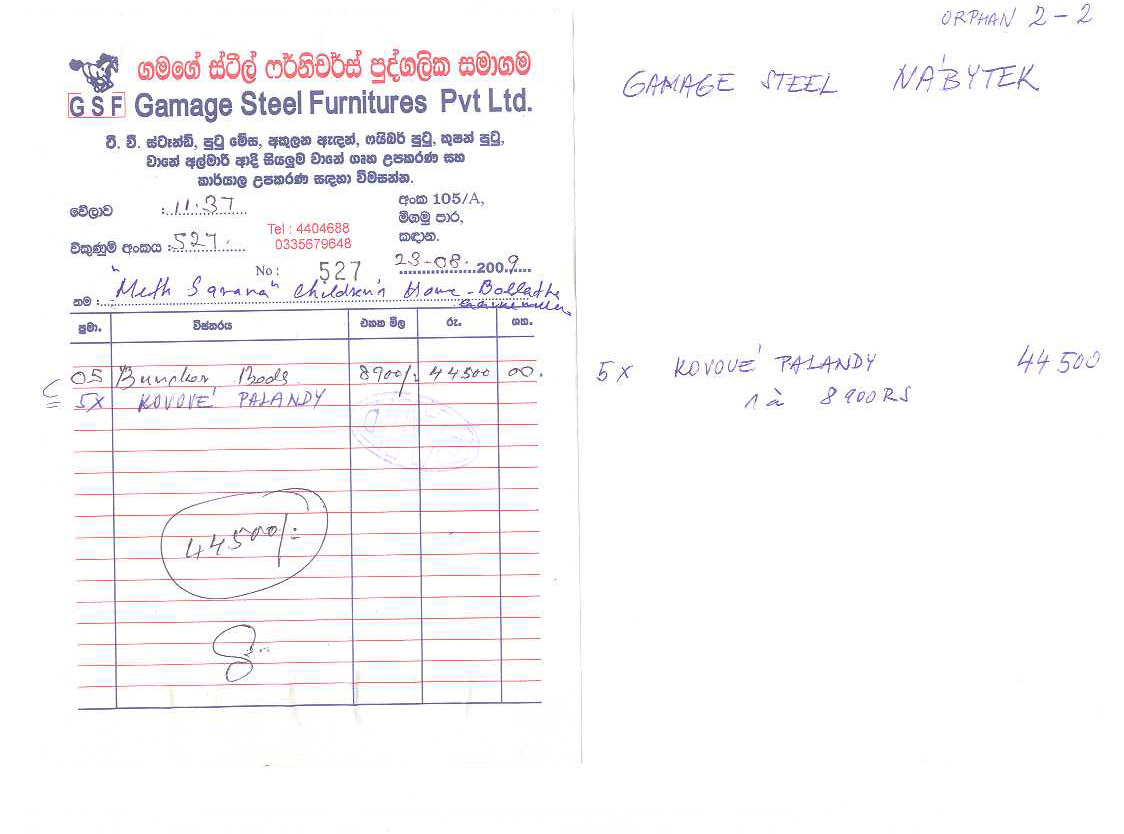 ගමගේ ස්ටීල් ෆර්නිචර්ස් පුද්ගලික සමාගම
GSF Gamage Steel Furnitures Pvt Ltd.
ටී. වී. ස්ටෑන්ඩ්, පුටු මේස, අකුලන ඇඳන්, ෆයිබර් පුටු, කුෂන් පුටු,
වානේ අල්මාරි ආදි සියලුම වානේ ගෘහ උපකරණ සහ
කාර්යාල උපකරණ සඳහා විමසන්න.
වේලාව : 11:37
අංක 105/A,
මීගමු පාර,
කඳාන.
Tel : 4404688
0335679648
විකුණුම් අංකය : 527.
No : 527
23-08- 2009
නම : "Meth Sarana" Children's Home - Bollatha
ප්‍රමා. විස්තරය එකක මිල රු. ශත.
05 Beds 8900/- 44500 00.
5X KOVOVÉ PALANDY
44500/-
ORPHAN 2-2
GAMAGE STEEL NÁBYTEK
5X KOVOVÉ PALANDY 44 500
1 à 8 900 RS